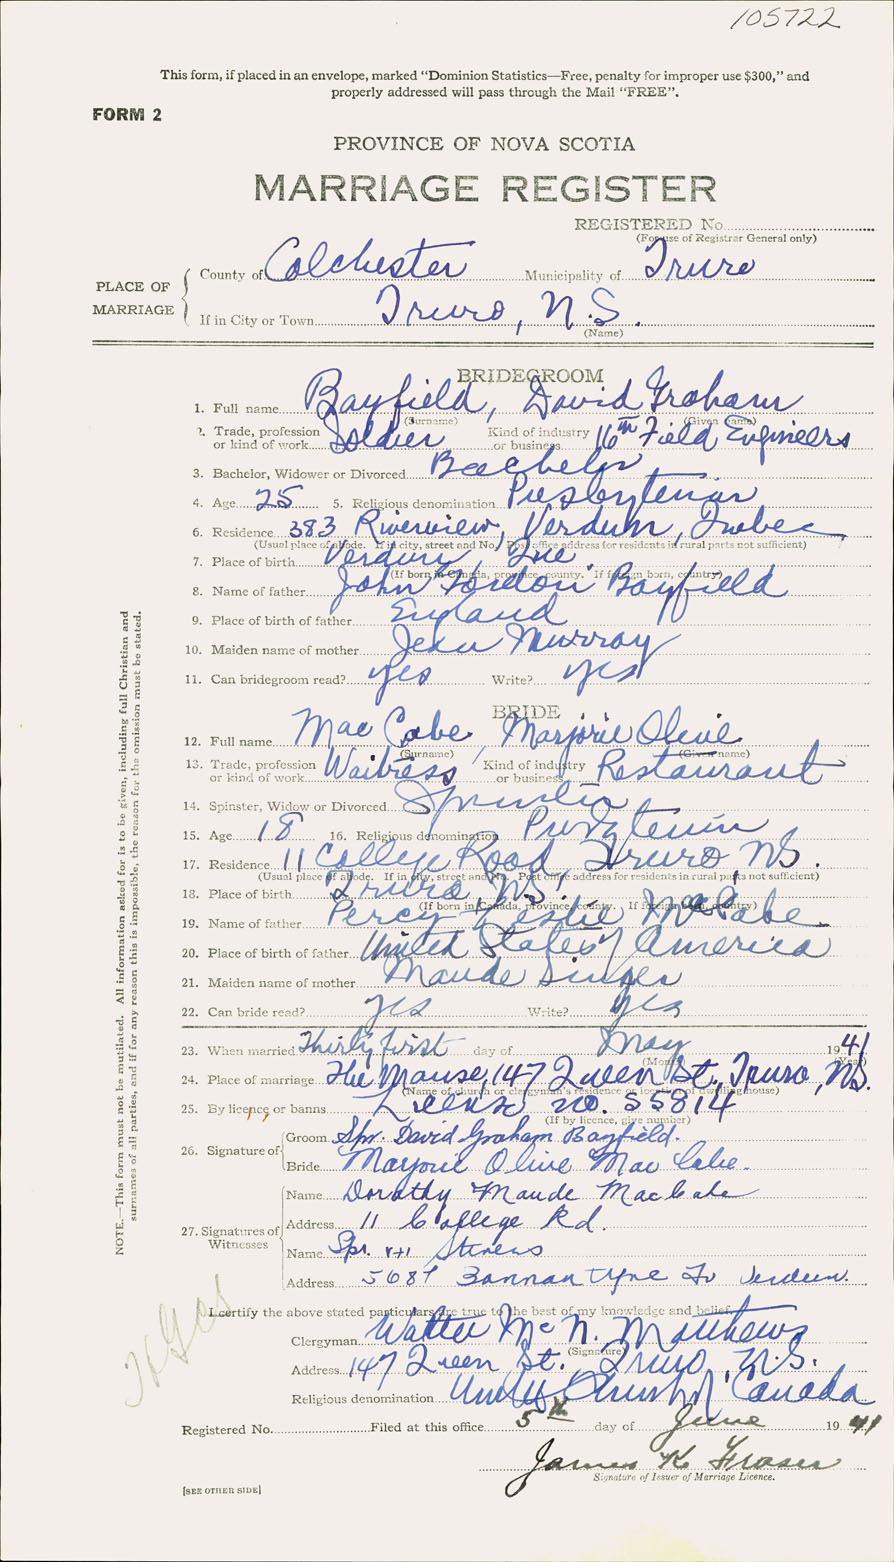 105722
This form, if placed in an envelope, marked “Dominion Statistics—Free, penalty for improper use $300,” and
properly addressed will pass through the Mail “FREE”.
FORM 2
PROVINCE OF NOVA SCOTIA
MARRIAGE REGISTER
REGISTERED No.
(For use of Registrar General only)
PLACE OF MARRIAGE
County of Colchester Municipality of Truro
If in City or Town Truro, N.S.
(Name)
BRIDEGROOM
1. Full name Bayfield, David Graham
(Surname) (Given name)
2. Trade, profession or kind of work Soldier Kind of industry or business 16th Field Engineers
3. Bachelor, Widower or Divorced Bachelor
4. Age 25 5. Religious denomination Presbyterian
6. Residence 383 Riverview, Verdun, Quebec
(Usual place of abode. If in city, street and No. Post office address for residents in rural parts not sufficient)
7. Place of birth Verdun, Que.
(If born in Canada, province, county. If foreign born, country)
8. Name of father John Gordon Bayfield
9. Place of birth of father England
10. Maiden name of mother Jean Murray
11. Can bridegroom read? Yes Write? Yes
BRIDE
12. Full name MacCabe, Marjorie Olive
(Surname) (Given name)
13. Trade, profession or kind of work Waitress Kind of industry or business Restaurant
14. Spinster, Widow or Divorced Spinster
15. Age 18 16. Religious denomination Presbyterian
17. Residence 11 College Road, Truro, N.S.
(Usual place of abode. If in city, street and No. Post office address for residents in rural parts not sufficient)
18. Place of birth Truro N.S.
(If born in Canada, province, county. If foreign born, country)
19. Name of father Percy Leslie MacCabe
20. Place of birth of father United States of America
21. Maiden name of mother Maude
22. Can bride read? Yes Write? Yes
23. When married Thirty first day of May 1941
(Month) (Year)
24. Place of marriage The Manse, 147 Queen St., Truro, N.S.
(Name of church or clergyman's residence or location of dwelling house)
25. By licence, or banns License no. 55814
(If by licence, give number)
26. Signature of
Groom Spr. David Graham Bayfield.
Bride Marjorie Olive MacCabe.
27. Signatures of Witnesses
Name Dorothy Maude MacCabe
Address 11 College Rd.
Name Spr. Stevens
Address 5687 Bannantyne Verdun.
I certify the above stated particulars are true to the best of my knowledge and belief.
Clergyman Walter McN. Matthews
(Signature)
Address 147 Queen St. Truro, N.S.
Religious denomination United Church of Canada
Registered No. Filed at this office 5th day of June 1941
James K Fraser
Signature of Issuer of Marriage Licence.
[SEE OTHER SIDE]
NOTE.—This form must not be mutilated. All information asked for is to be given, including full Christian and
surnames of all parties, and if for any reason this is impossible, the reason for the omission must be stated.